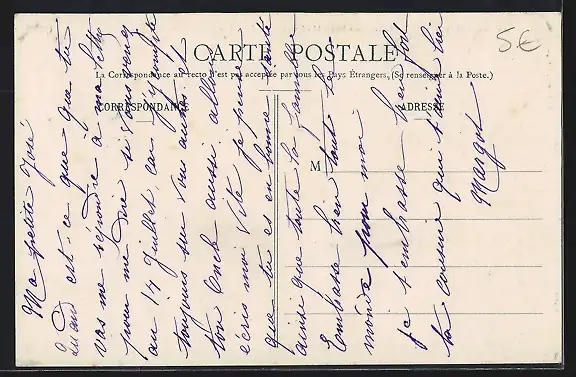 CARTE POSTALE
La Correspondance au recto n'est pas acceptée par tous les Pays Étrangers. (Se renseigner à la Poste.)
CORRESPONDANCE
ADRESSE
M
5€
Ma petite José
Quand est-ce que que tu
vas me répondre à ma lettre
pour me dire si vous venez
au 14 Juillet, car j'y compte
toujours sur vous autres et
ton oncle aussi. allons
écris moi vite je pense
que tu es en bonne santé
ainsi que toute la famille
Embrasse bien tout le
monde pour moi
je t'embrasse bien fort
ta cousine qui t'aime bien
Margot